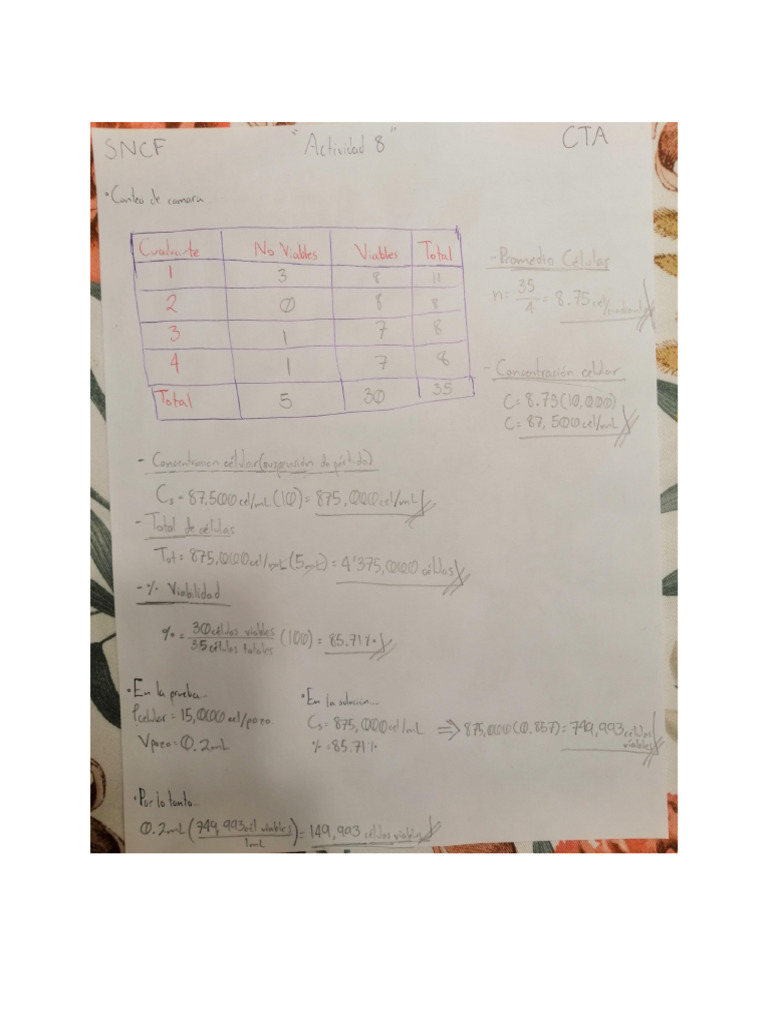 SNCF "Actividad 8" CTA
• Conteo de camara
Cuadrante No Viables Viables Total
1 3 8 11
2 0 8 8
3 1 7 8
4 1 7 8
Total 5 30 35
- Promedio Célular
n= 35/4 = 8.75 cel/
- Concentración celular
C= 8.75(10,000)
C= 87,500 cel/mL
- Concentración célular (suspensión de pástida)
Cs = 87,500 cel/mL (10) = 875,000 cel/mL
- Total de células
Tot = 875,000 cel/mL (5mL) = 4'375,000 células
- % Viabilidad
% = 30 células viables / 35 células totales (100) = 85.71%
• En la prueba...
Pcelular = 15,000 cel/pozo
Vpozo = 0.2mL
• En la solución...
Cs = 875,000 cel/mL ⇒ 875,000(0.857) = 749,993 células viables
% = 85.71%
• Por lo tanto...
0.2mL (749,993 cel viables / 1mL) = 149,993 células viables